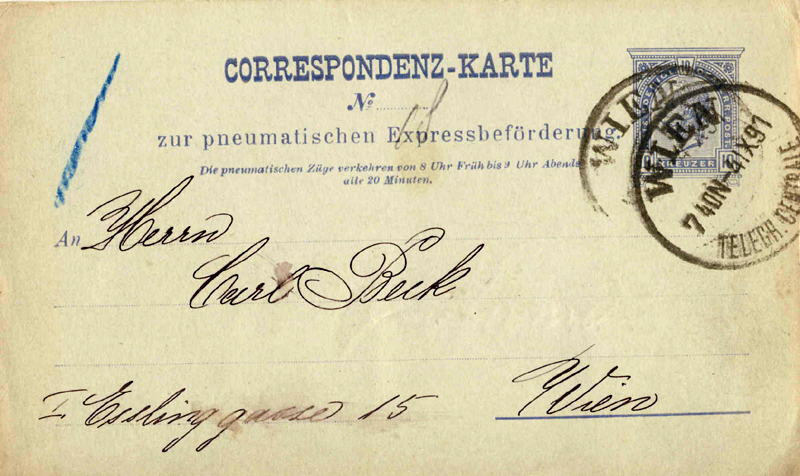 CORRESPONDENZ-KARTE
No 48
zur pneumatischen Expressbeförderung.
Die pneumatischen Züge verkehren von 8 Uhr Früh bis 9 Uhr Abends
alle 20 Minuten.
10 KREUZER 10
WIEN
WIEN
7 40N
91
TELEGR. CENTRALE
An Herrn
Carl Beck
I. Esslinggasse 15
Wien